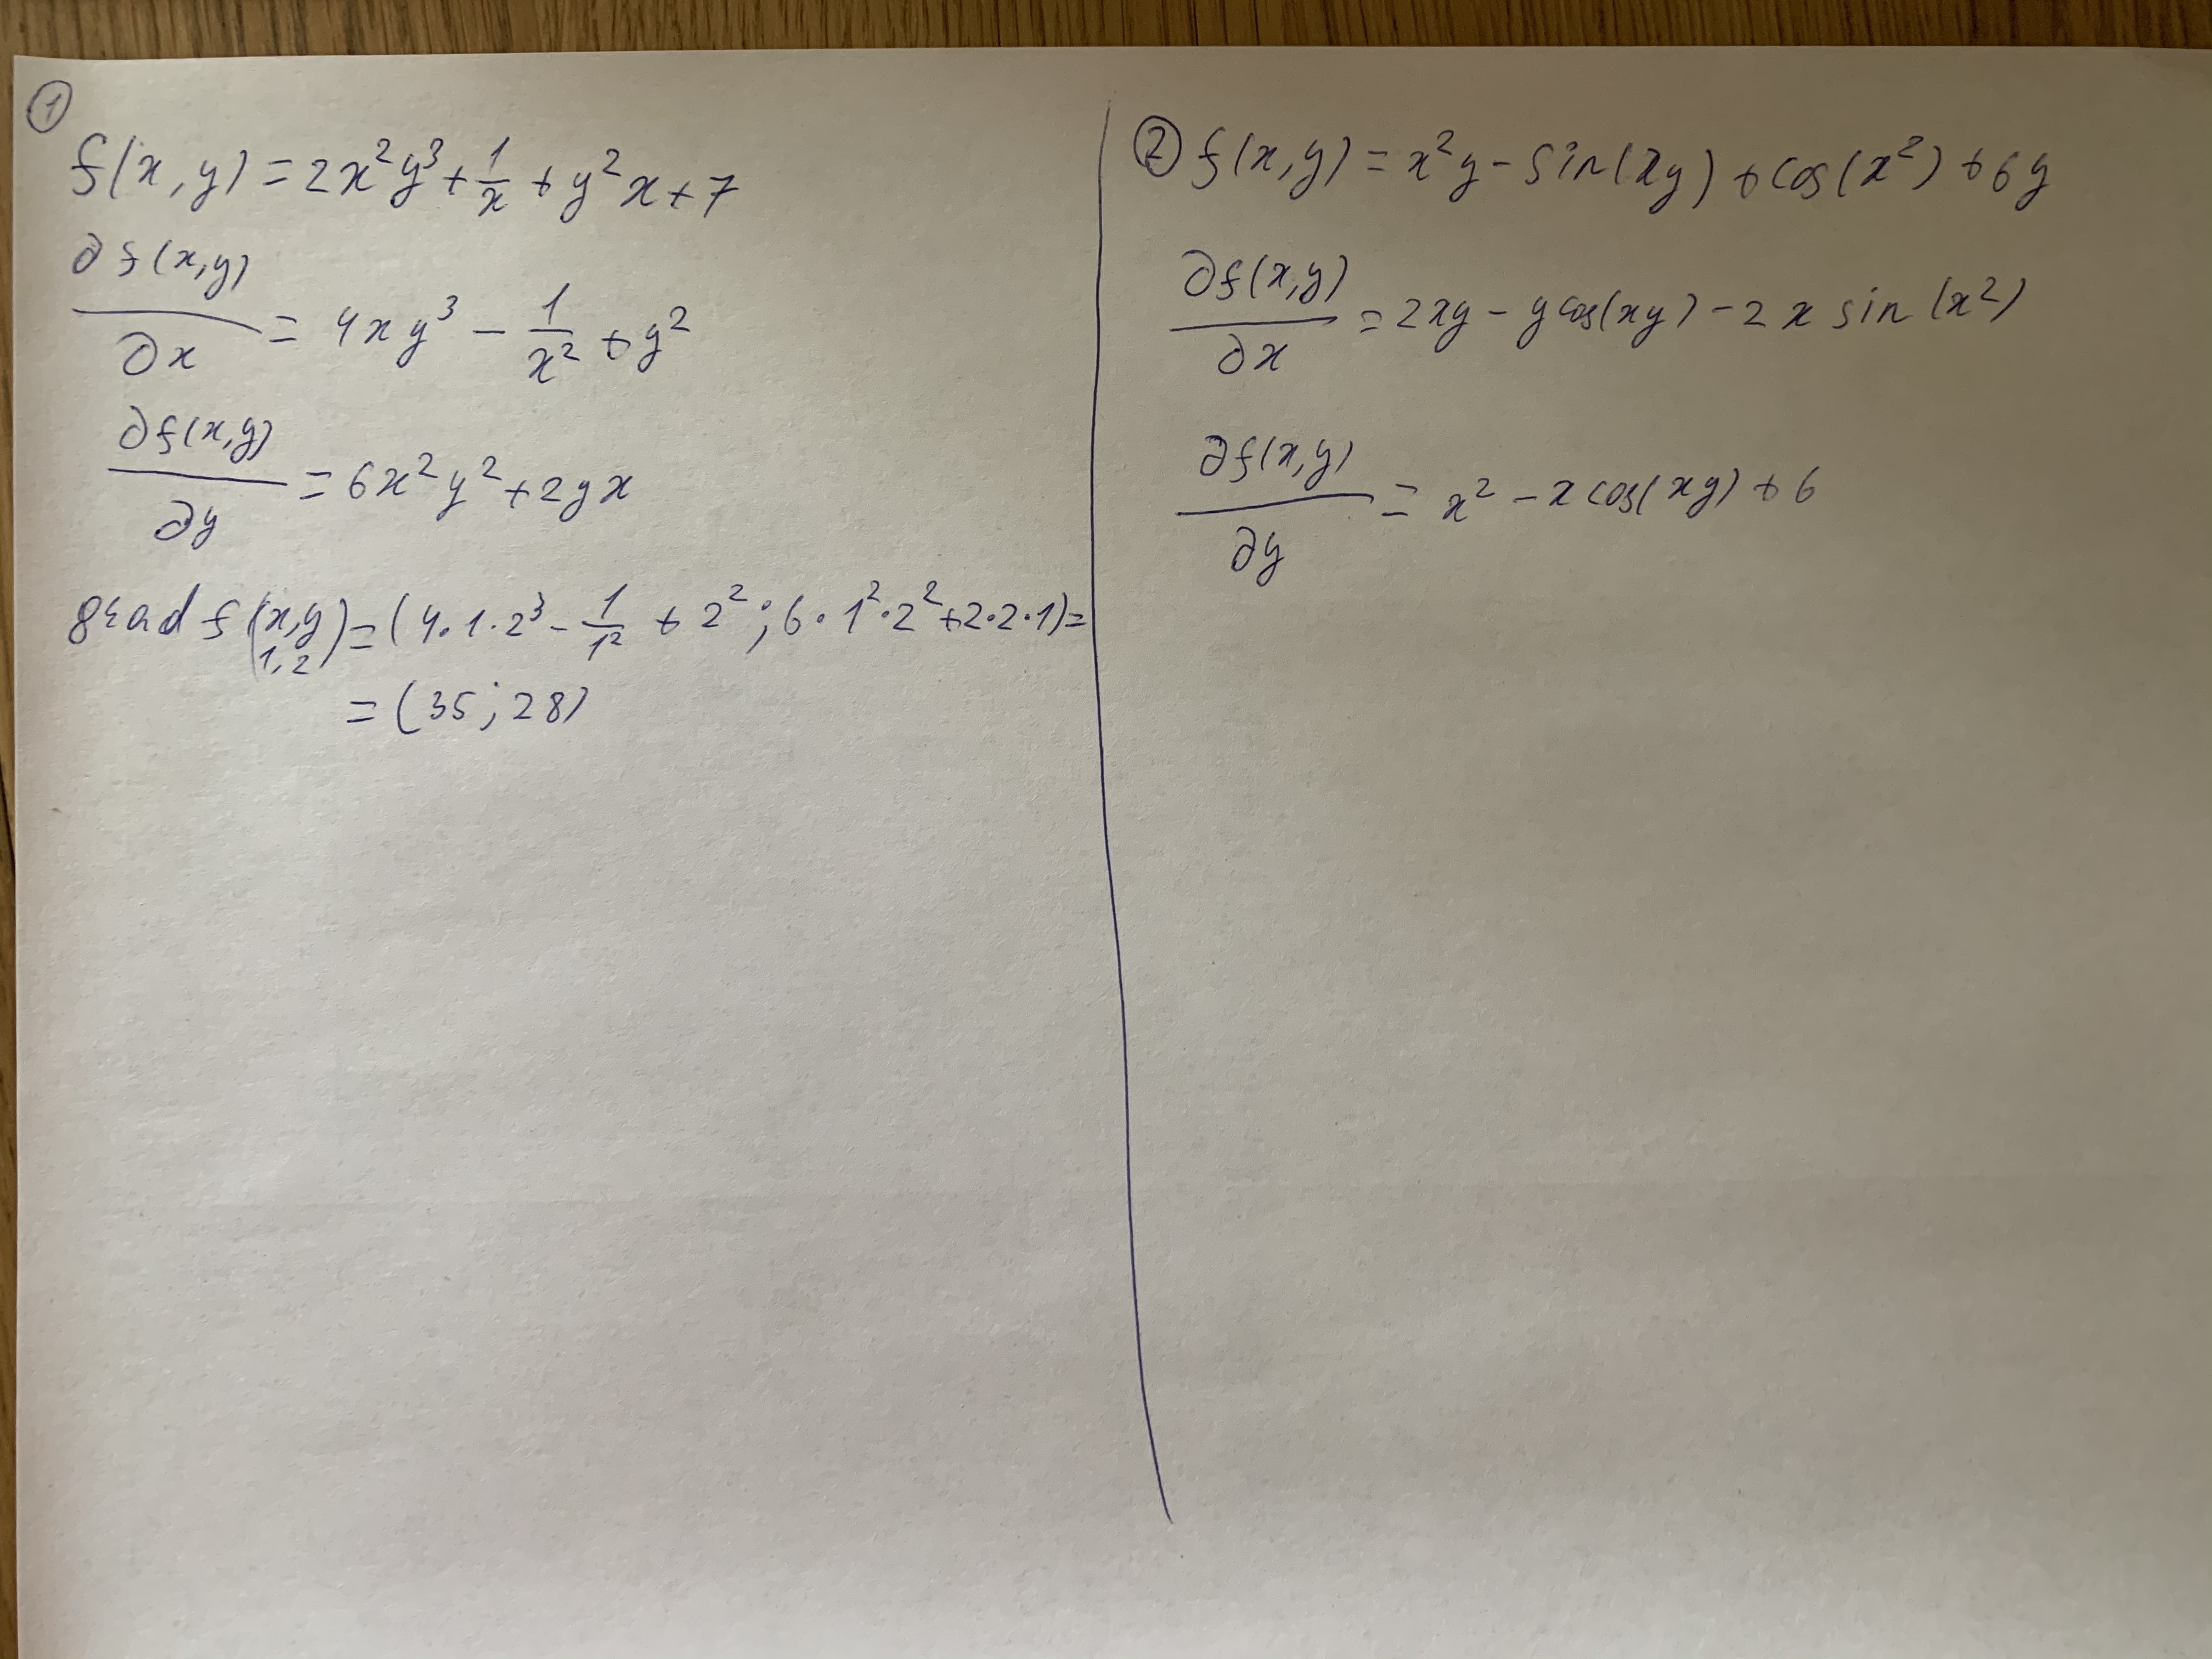 ①
f(x,y)=2x²y³+1/x+y²x+7
∂f(x,y)/∂x = 4xy³ - 1/x² + y²
∂f(x,y)/∂y = 6x²y²+2yx
grad f(x,y)=(4·1·2³ - 1/1² + 2²; 6·1²·2²+2·2·1)=
1,2
=(35;28)
② f(x,y)=x²y-sin(xy)+cos(x²)+6y
∂f(x,y)/∂x = 2xy - y cos(xy) - 2x sin(x²)
∂f(x,y)/∂y = x² - x cos(xy) + 6